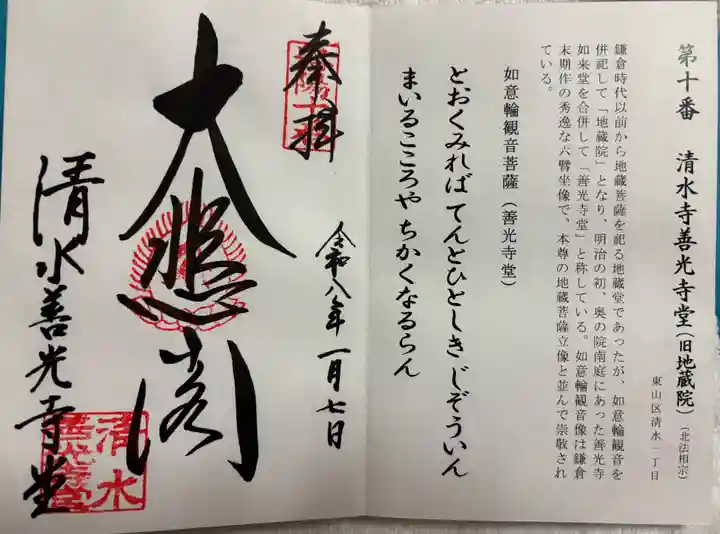 第十番 清水寺善光寺堂(旧地蔵院)(北法相宗)
東山区清水一丁目
鎌倉時代以前から地蔵菩薩を祀る地蔵堂であったが、如意輪観音を
併祀して「地蔵院」となり、明治の初、奥の院南庭にあった善光寺
如来堂を合併して「善光寺堂」と称している。如意輪観音像は鎌倉
末期作の秀逸な六臂坐像で、本尊の地蔵菩薩立像と並んで崇敬され
ている。
如意輪観音菩薩(善光寺堂)
とおくみれば てんとひとしき じぞういん
まいるこころや ちかくなるらん
奉拝
令和八年一月七日
大悲閣
清水善光寺堂
清水
善光寺堂